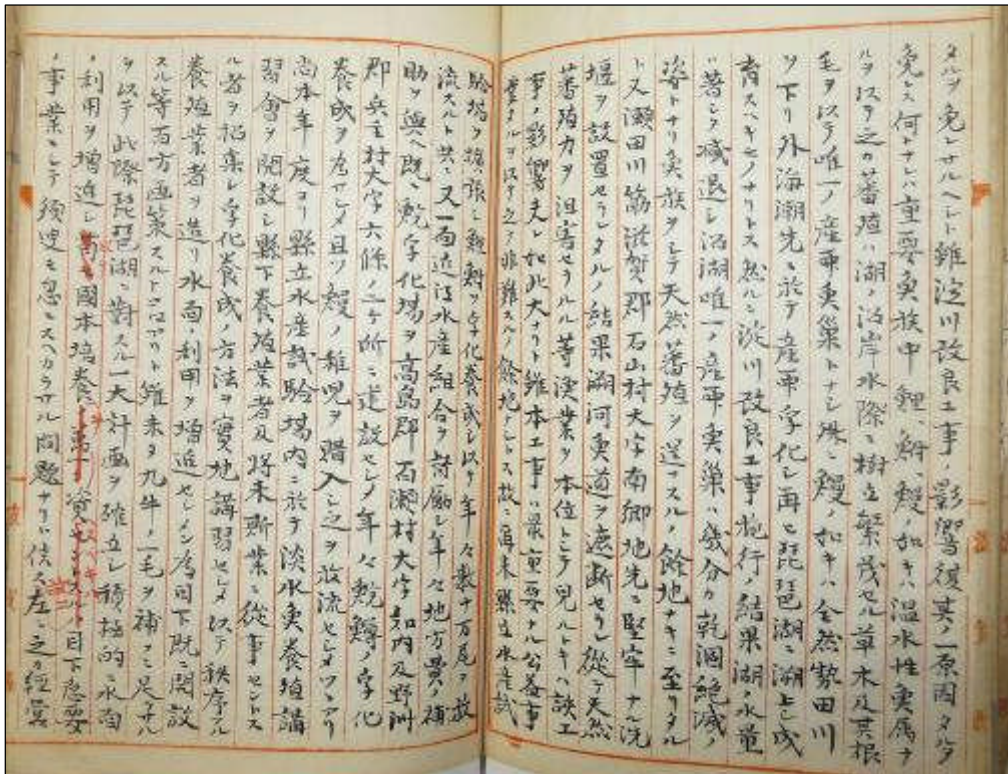 タルヲ免レサルヘシト雖淀川改良工事ノ影響復其ノ一原因タルヲ
免レス何トナレハ重要魚族中鯉、鮒、鰻ノ如キハ温水性魚属ナ
ルヲ以テ之カ蕃殖ハ湖ノ沿岸水際ニ樹立繁茂セル草木及其根
毛ヲ以テ唯一ノ産卵魚巣トナシ殊ニ鰻ノ如キハ全然勢田川
ヲ下リ外海潮先ニ於テ産卵孚化シ再ヒ琵琶湖ニ溯上シ成
育スヘキモノナリトス然ルニ淀川改良工事施行ノ結果湖ノ水量
ハ著シク減退シ沼湖唯一ノ産卵魚巣ハ幾分カ乾涸絶滅ノ
姿トナリ魚族ヲシテ天然蕃殖ヲ遂ケスルノ餘地ナキニ至リタル
トス瀬田川筋滋賀郡石山村大字南郷地先ニ堅牢ナル洗
堰ヲ設置セラレタルノ結果溯河魚道ヲ遮断セラレ從テ天然
蕃殖力ヲ沮害セラルル等漁業ヲ本位トシテ見ルトキハ該工
事ノ影響夫レ如此大ナリト雖本工事ハ最重要ナル公益事
業ナルヲ以テ之ヲ非難スルノ餘地ナシトス故ニ爾来縣立水産試
驗場ヲ擴張シ鯉鮒ヲ孚化養成シ以テ年々数十万尾ヲ放
流スルト共ニ又一面近江水産組合ヲ奨励シ年々地方費ノ補
助ヲ與ヘ既ニ鮀孚化場ヲ高島郡百瀬村大字知内及野洲
郡兵主村大字六條ノ二ケ所ニ建設セシメ年々鮀鱒ノ孚化
養成ヲ為サシメ且ツ鰻ノ稚児ヲ購入シ之ヲ放流セシメツヽアリ
尚本年度ヨリ縣立水産試驗場内ニ於テ淡水魚養殖講
習會ヲ開設シ縣下養殖業者及将来斯業ニ從事セントス
ル者ヲ招集シ孚化養成ノ方法ヲ實地講習セシメ以テ秩序アル
養殖業者ヲ造リ水面ノ利用ヲ増進セシメン為目下既ニ開設
スル等百方画策スルトコロアリト雖未タ九牛ノ一毛ヲ補フニ足ラサル
ヲ以テ此際琵琶湖ニ對スル一大計画ヲ確立シ積極的ニ水面
ノ利用ヲ増進シ國本培養ノ資 目下急要
ノ事業ニシテ須臾モ忽ニスヘカラサル問題ナリ依ス左ニ之カ經営